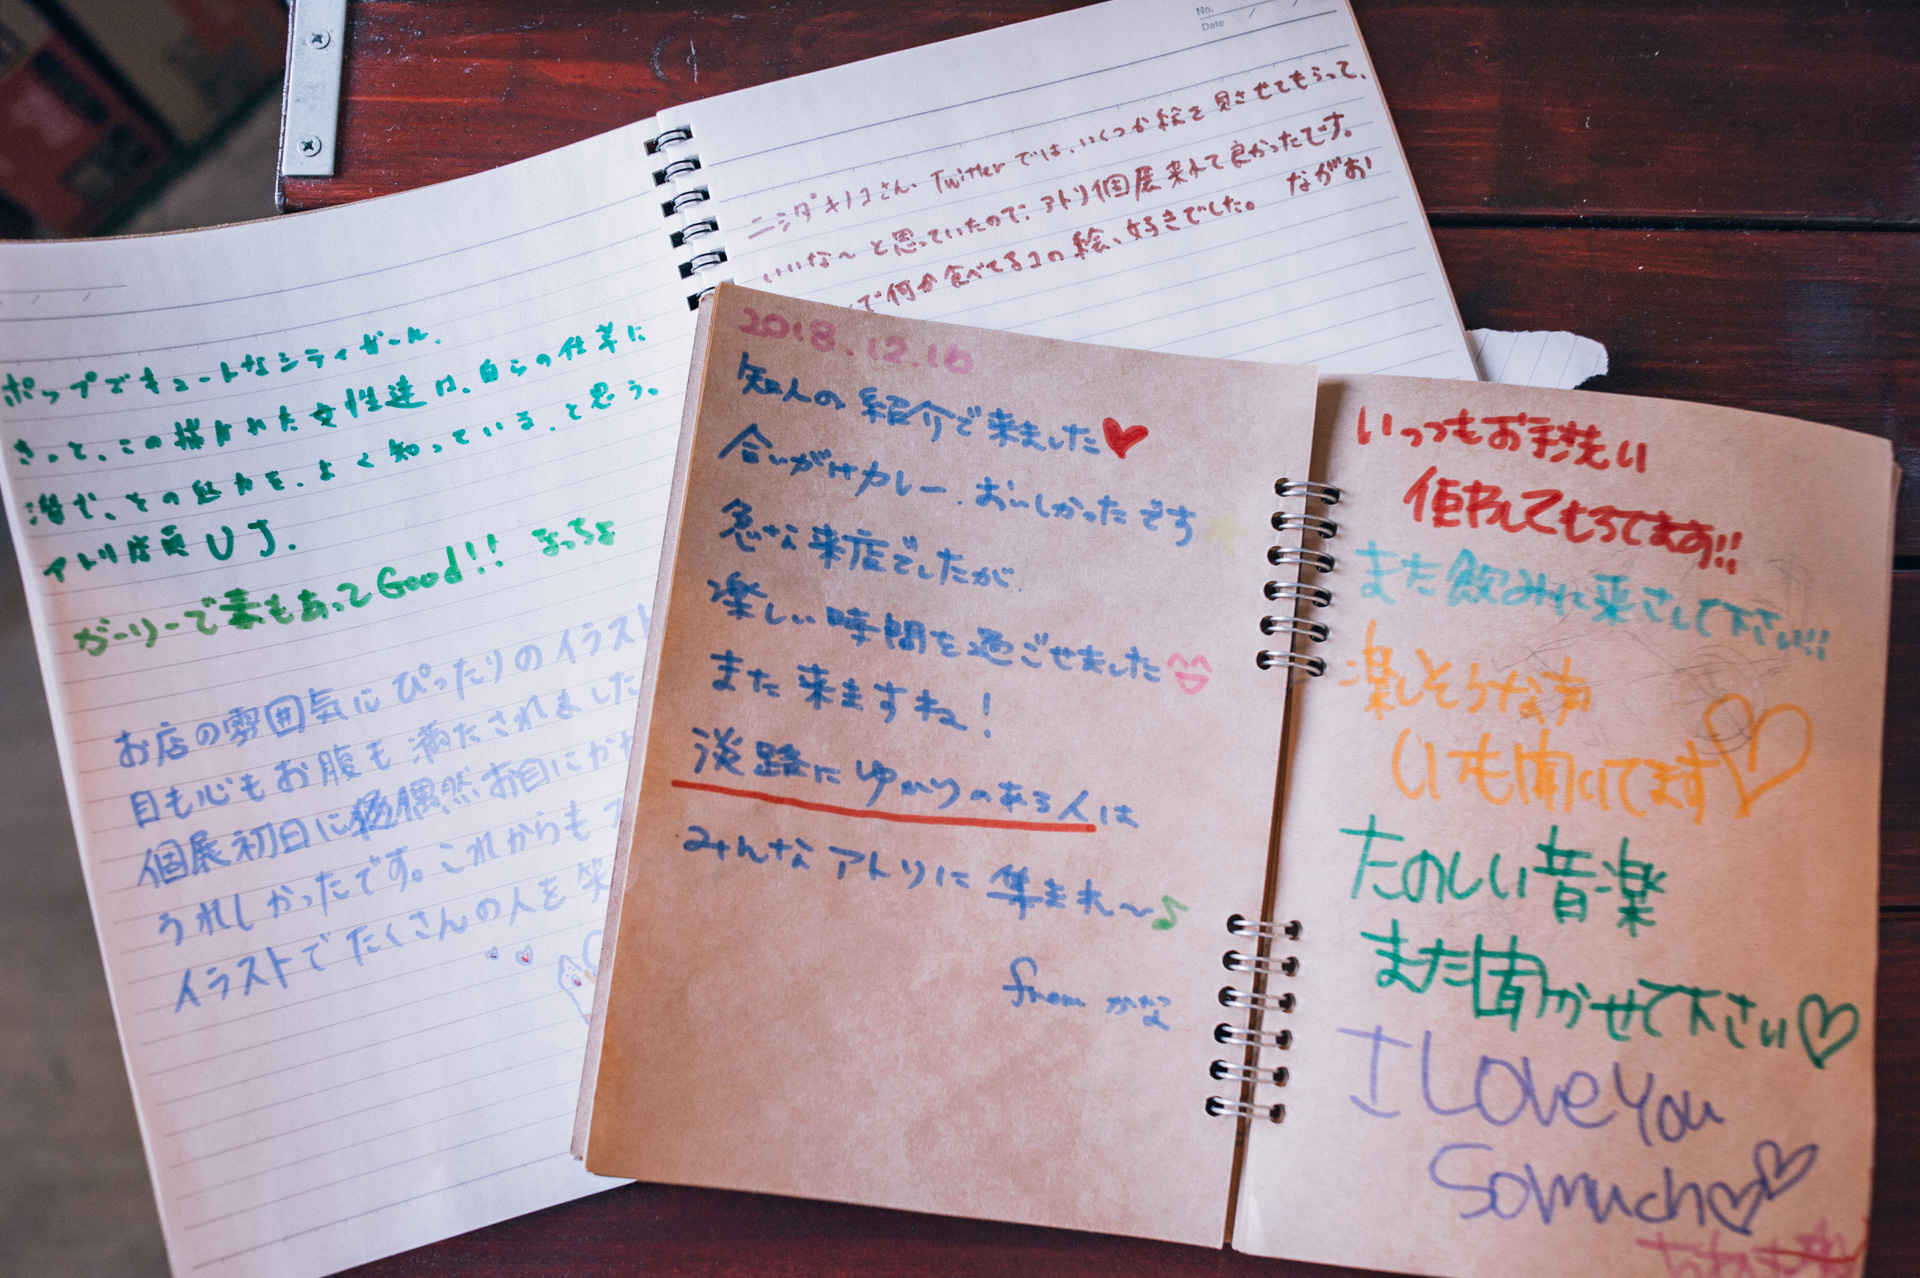 No.
Date
ニシダキノコさん、Twitterでは、いくつか絵を見させてもらって、
いいな〜と思っていたので、アトリ個展来れて良かったです。
で何か食べてる1の絵、好きでした。 ながお
ポップでキュートなシティガール。
きっと、この描かれた女性達は、自らの仕草に
潜む、その魅力を、よく知っている、と思う。
アトリ店員UJ.
ガーリーで毒もあってGood!! まっちょ
お店の雰囲気にぴったりのイラスト
目も心もお腹も満たされました
個展初日に偶然お目にかか
うれしかったです。これからもス
イラストでたくさんの人を笑
2018.12.16
知人の紹介で来ました
合いがけカレー、おいしかったです
急な来店でしたが、
楽しい時間を過ごせました
また来ますね!
淡路にゆかりのある人は
みんなアトリに集まれ〜♪
from かな
いっつもお手洗い
使わしてもらてます!!
また飲みに来さして下さい!!
楽しそうな声
いつも聞いてます♡
たのしい音楽
また聞かせて下さい♡
I Love You
So much♡♡